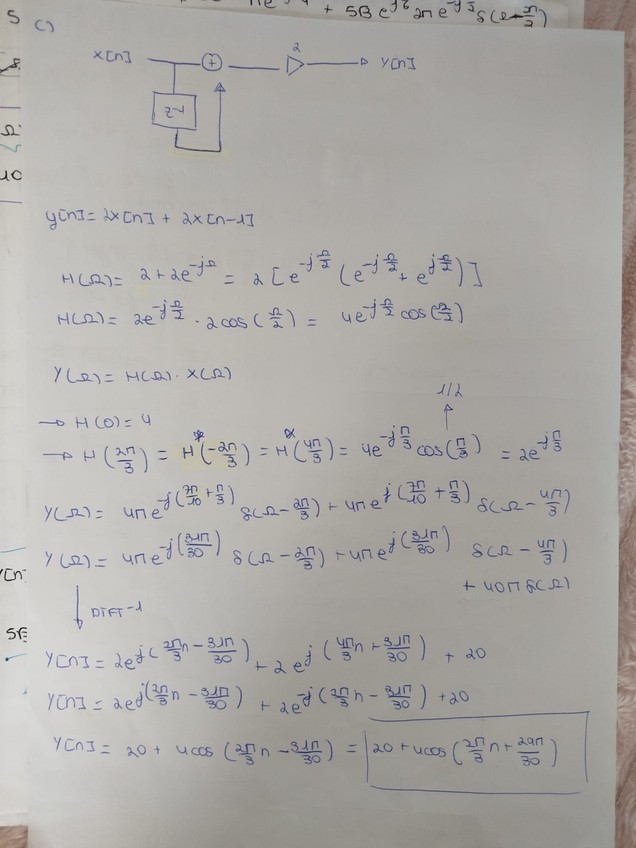 + 5B e^jδ 2π e^-j δ(Ω-π/2)
c)
X[n] + 2 Y[n]
z-1
y[n] = 2x[n] + 2x[n-1]
H(Ω) = 2 + 2e^-jΩ = 2 [e^-jΩ/2 (e^-jΩ/2 + e^jΩ/2)]
H(Ω) = 2e^-jΩ/2 · 2cos(Ω/2) = 4e^-jΩ/2 cos(Ω/2)
Y(Ω) = H(Ω) · X(Ω)
1/2
→ H(0) = 4
→ H(2π/3) = H*(-2π/3) = H*(4π/3) = 4e^-jπ/3 cos(π/3) = 2e^-jπ/3
Y(Ω) = 4πe^-j(7π/10 + π/3) δ(Ω - 2π/3) + 4πe^j(7π/10 + π/3) δ(Ω - 4π/3)
Y(Ω) = 4πe^-j(31π/30) δ(Ω - 2π/3) + 4πe^j(31π/30) δ(Ω - 4π/3)
+ 40πδ(Ω)
DTFT-1
Y[n] = 2e^j(2π/3 n - 31π/30) + 2e^j(4π/3 n + 31π/30) + 20
Y[n] = 2e^j(2π/3 n - 31π/30) + 2e^-j(2π/3 n - 31π/30) + 20
Y[n] = 20 + 4cos(2π/3 n - 31π/30) = 20 + 4cos(2π/3 n + 29π/30)